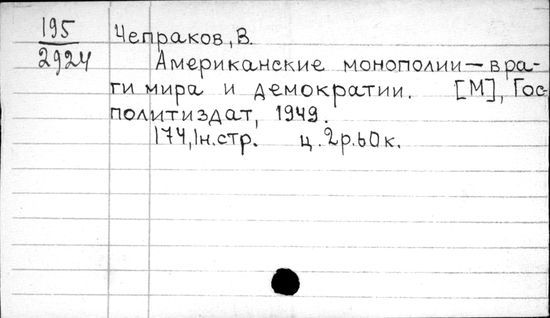 195
2924
Чепраков, В.
Американские монополии — вра-
ги мира и демократии. [М], Гос
политиздат, 1949.
174, 1н. стр. ц. 2р. 60к.